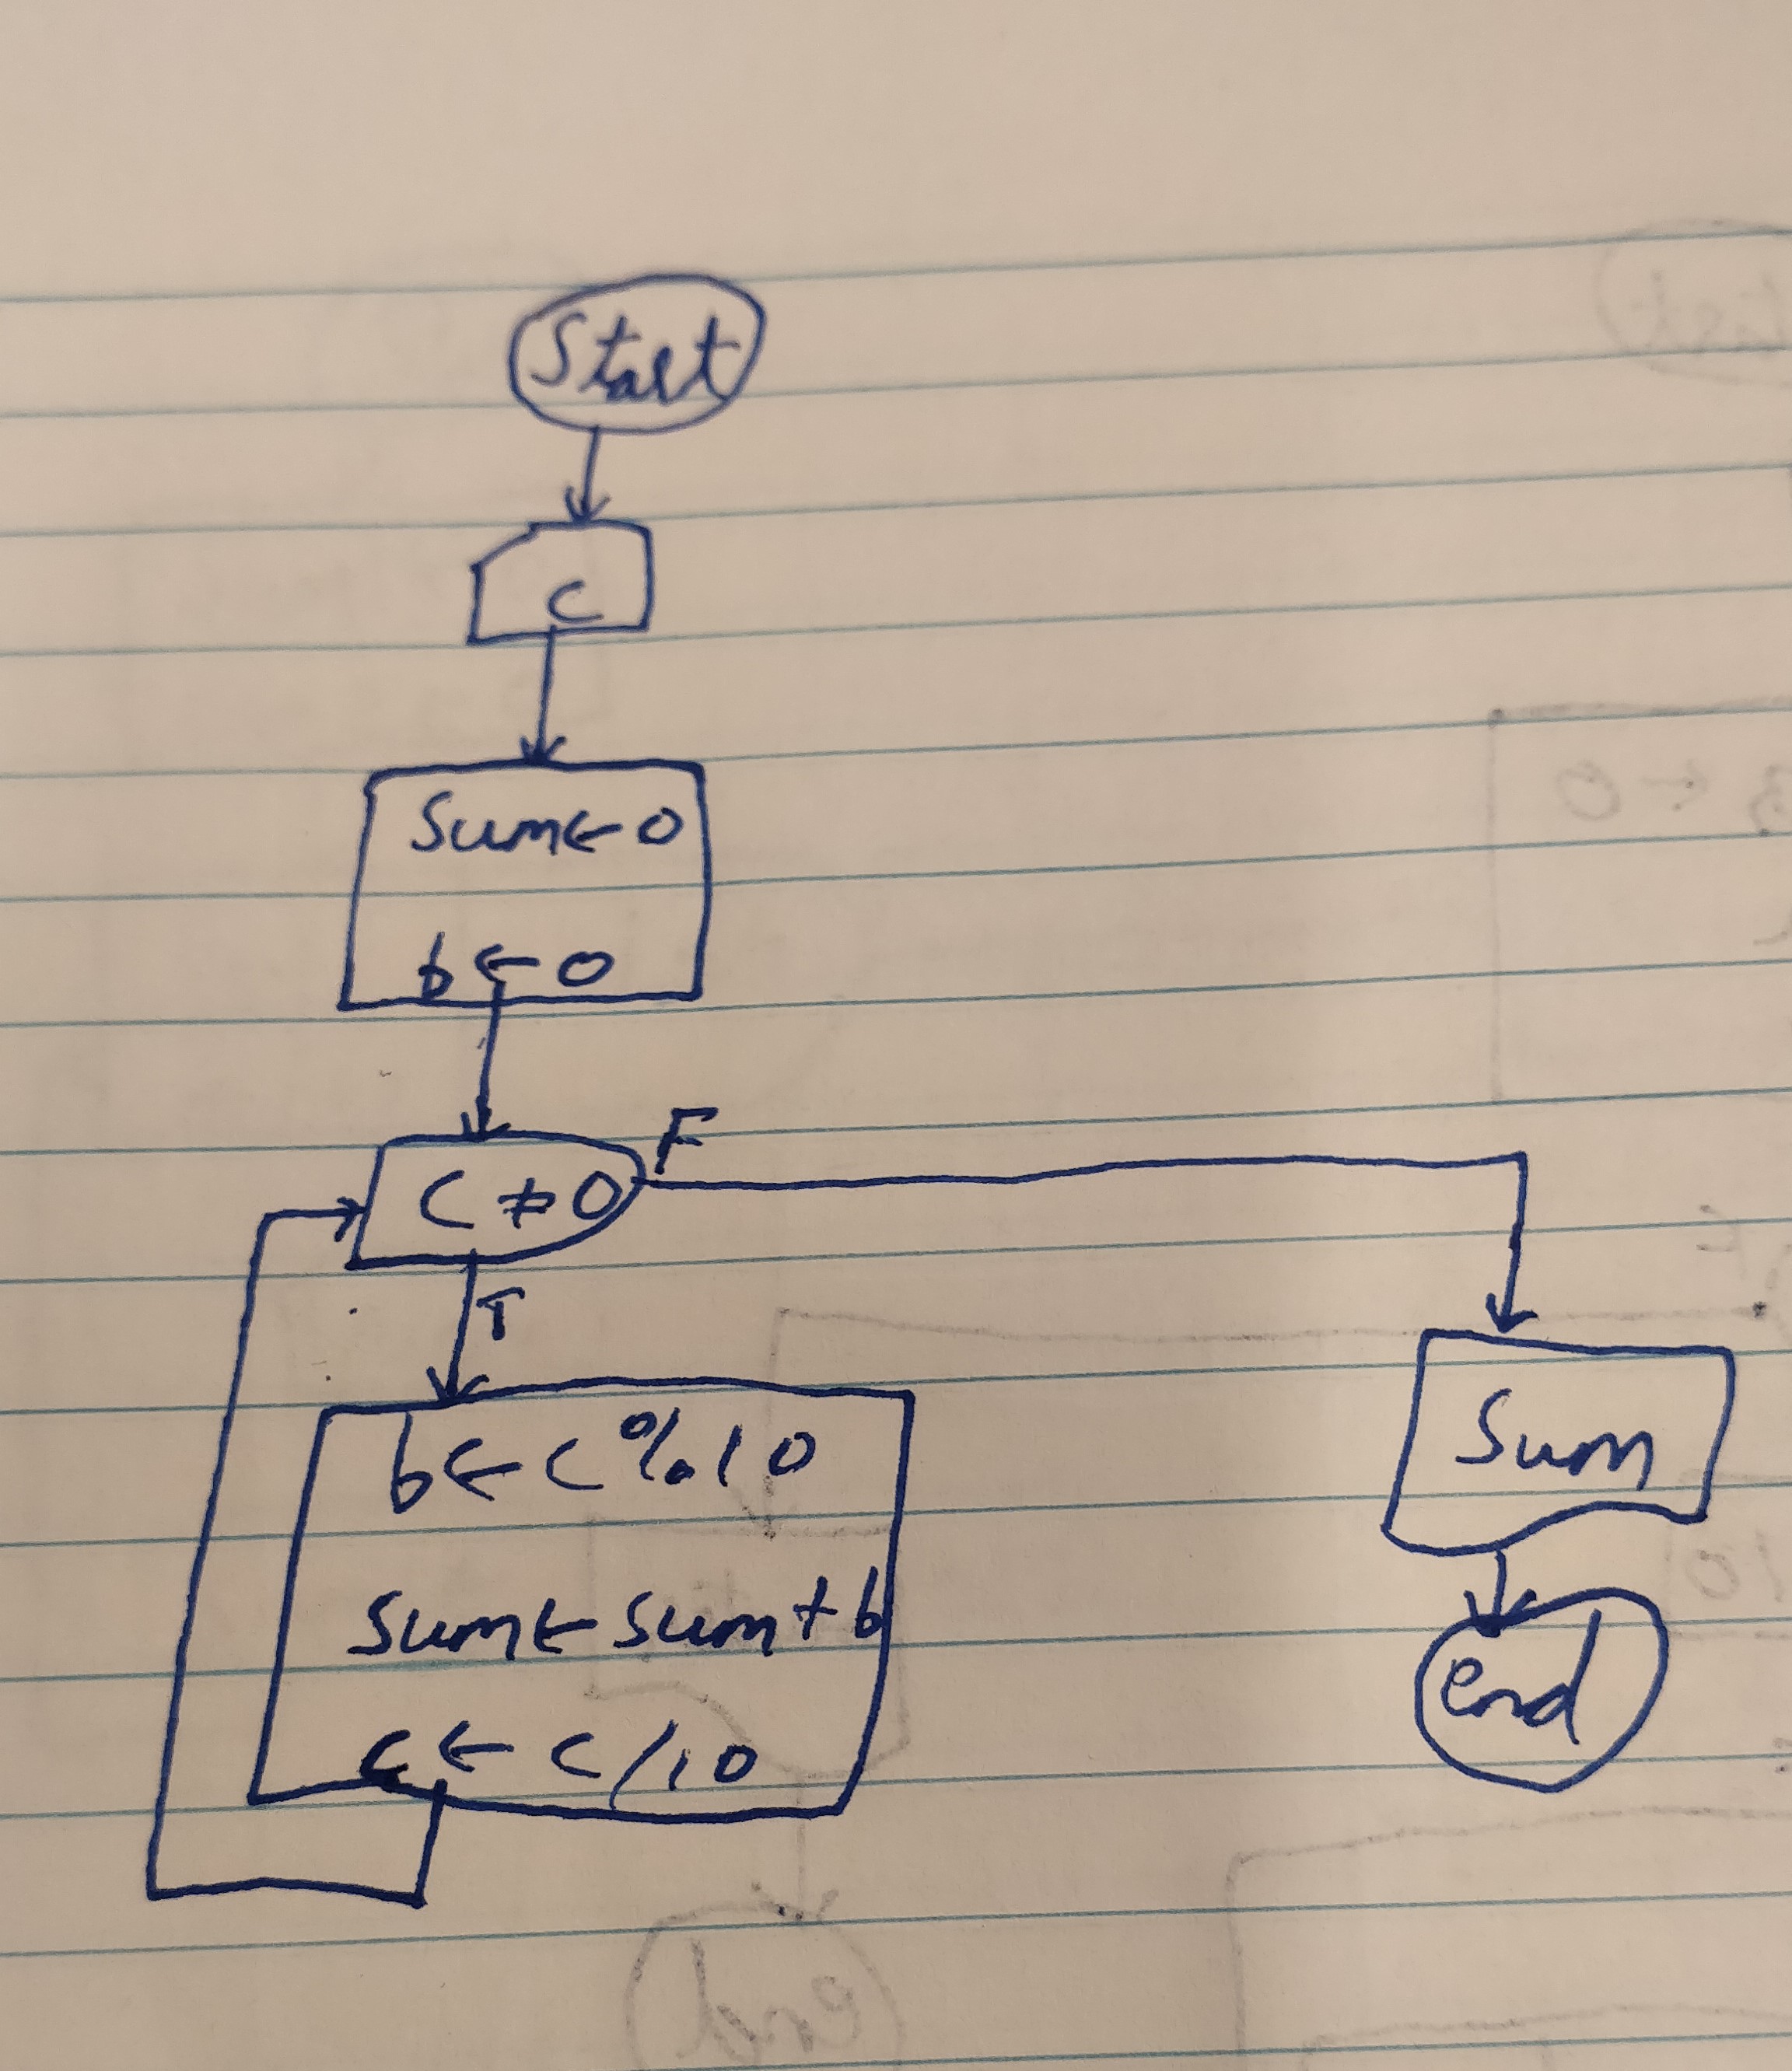 Start
c
Sum←0
b←0
C≠0
F
T
b←c%10
Sum←Sum+b
c←c/10
Sum
end